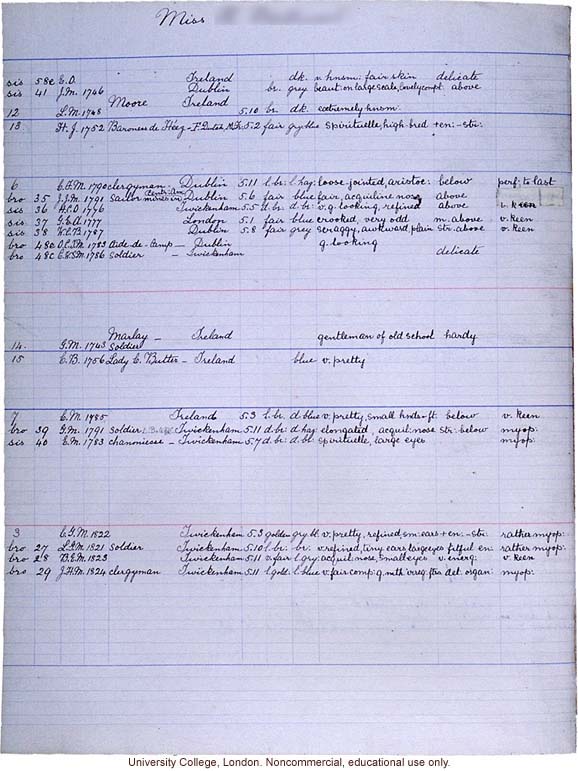 Miss
sis 58c E.O. Ireland dk. v. hnsm: fair skin delicate
sis 41 J.M. 1746 Dublin br. grey beaut: on large scale, lovely compt. above
Moore
12 L.M. 1748 Ireland 5.10 br. dk. extremely hnsm:
13. H.J. 1752 Baroness de - F. Dutch, M. 5.2 fair gryblue spirituelle, high-bred + en: - str:
6 1790 clergyman Dublin 5.11 l. br: l. hag: loose-jointed, aristoc: below perf: to last
bro 35 J.J.M. 1791 Sailor Dublin 5.6 fair blue fair, acquline nose above
sis 36 1776 Twickenham 5.5 d. br: d. br: v. g. looking, refined above v. keen
sis 37 1777 London 5.1 fair blue crooked, very odd m. above v. keen
sis 38 1787 Dublin 5.8 fair grey scraggy, awkward, plain str: above v. keen
bro 48a 1783 Aide-de-camp - Dublin g. looking
bro 48c 1786 soldier - Twickenham delicate
Marlay -
14. G.M. 1743 Soldier Ireland gentleman of old school hardy
15 C.B. 1756 Lady C. Butler - Ireland blue v. pretty
7 C.M. 1785 Ireland 5.3 l. br. d. blue v. pretty, small hnds + ft. below v. keen
bro 39 G.M. 1791 soldier Twickenham 5.11 d. br: d. hag: elongated, acquil: nose str: below myop:
sis 40 E.M. 1783 chanoniesse - Twickenham 5.7 d. br: d. bl: spirituelle, large eyes myop:
3 C.G.M. 1822 Twickenham 5.3 golden gry bl: v. pretty, refined, sm: ears + en: - str: rather myop:
bro 27 1821 soldier Twickenham 5.10 l. br: br: v. refined, tiny ears large eyes fitful en: rather myop:
bro 28 B.E.M. 1823 Twickenham 5.11 v. fair l. gry: acquil: nose, small eyes v. energ: v. keen
bro 29 J.H.M. 1824 clergyman Twickenham 5.11 l. gold: l. blue v. fair comp: g. mth: irreg: ftrs det: organ: myop:
University College, London. Noncommercial, educational use only.